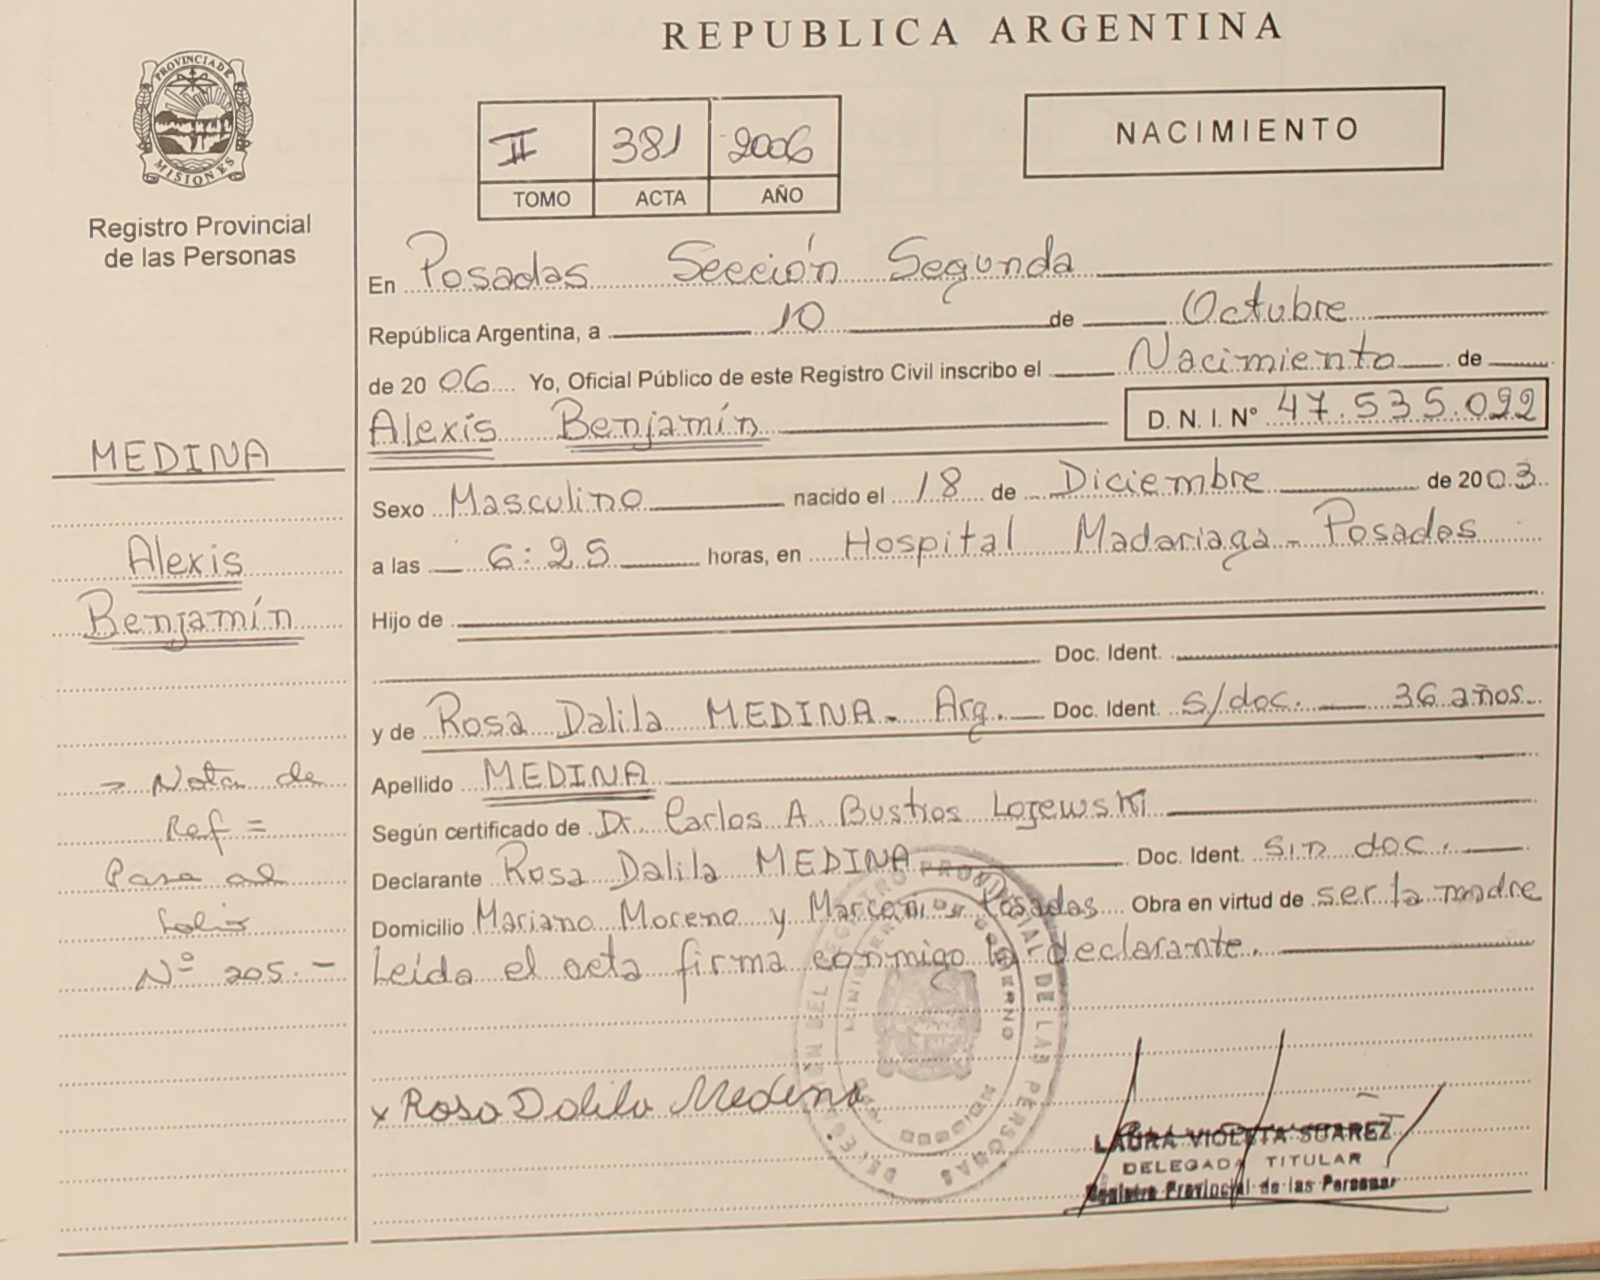 REPUBLICA ARGENTINA
PROVINCIA DE MISIONES
Registro Provincial
de las Personas
II 381 2006
TOMO ACTA AÑO
NACIMIENTO
En Posadas Sección Segunda
República Argentina, a 10 de Octubre
de 2006 Yo, Oficial Público de este Registro Civil inscribo el Nacimiento de
Alexis Benjamín D. N. I. Nº 47.535.022
Sexo Masculino nacido el 18 de Diciembre de 2003
a las 6:25 horas, en Hospital Madariaga - Posadas
Hijo de
Doc. Ident.
y de Rosa Dalila MEDINA - Arg. Doc. Ident. s/doc. 36 años
Apellido MEDINA
Según certificado de Dr. Carlos A. Bustios Lojewski
Declarante Rosa Dalila MEDINA Doc. Ident. sin doc.
Domicilio Mariano Moreno y Marconi - Posadas Obra en virtud de ser la madre
Leída el acta firma conmigo la declarante.
x Rosa Dalila Medina
MEDINA
Alexis
Benjamín
Nota de
Ref =
Pasa al
folio
Nº 205.-
REGISTRO PROVINCIAL DE LAS PERSONAS
GOBIERNO
LAURA VIOLETA SUAREZ
DELEGADA TITULAR
Registro Provincial de las Personas